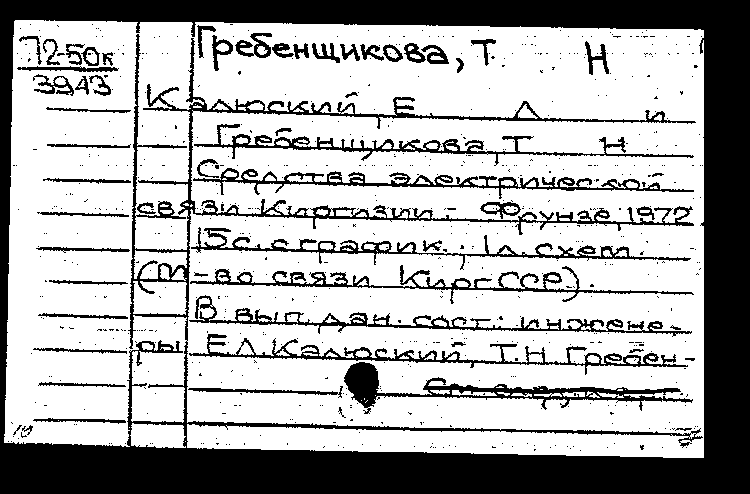 72-50к
3943
Гребенщикова, Т Н
Калюский, Е Л и
Гребенщикова, Т Н
Средства электрической
связи Киргизии. - Фрунзе, 1972.
15с. с график.; 1л. схем.
(М-во связи КиргССР).
В вып. дан. сост.: инжене-
ры Е.Л.Калюский, Т.Н.Гребен-
См. след. карт.
10